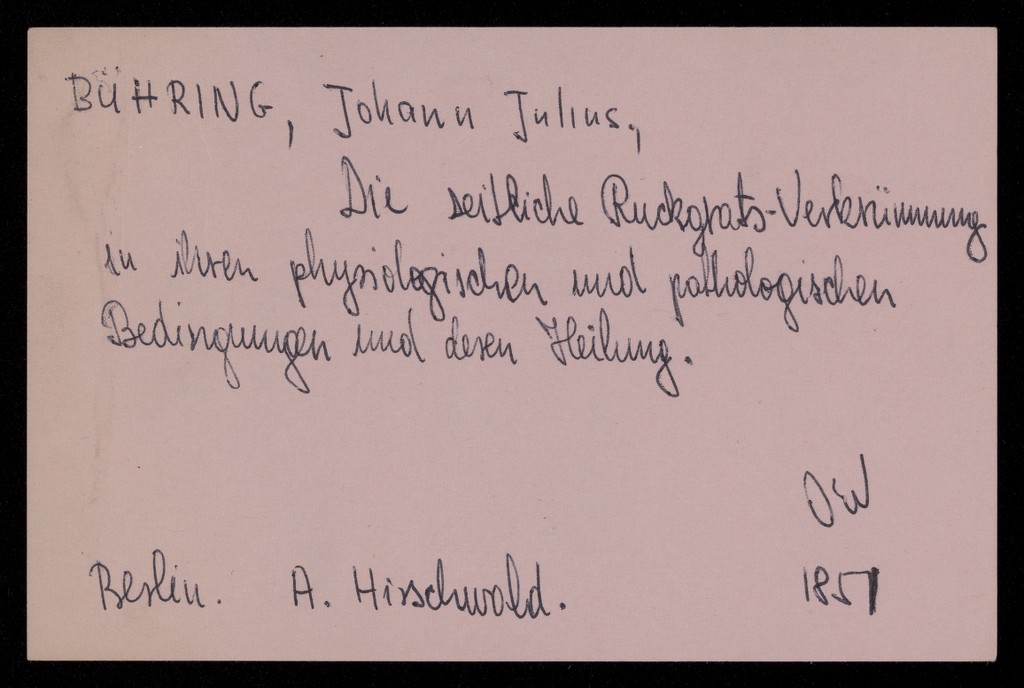 BÜHRING, Johann Julius.,
Die seitliche Ruckgrats-Verkrümmung
in ihren physiologischen und pathologischen
Bedingungen und deren Heilung.
Berlin. A. Hirschwald. 1851